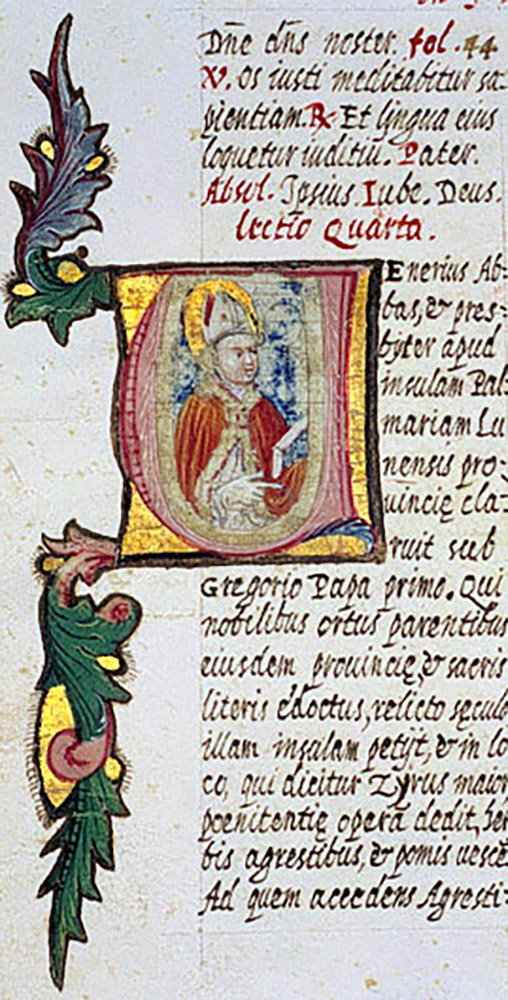 Dñe dñs noster. fol. 44
V. Os iusti meditabitur sa-
pientiam. ℞. Et lingua eius
loquetur iuditiũ. Pater.
Absol. Ipsius. Iube. Deus.
lectio Quarta.
VEnerius Ab-
bas, & pres-
byter apud
insulam Pal-
mariam Lu
nensis pro-
uincię cla-
ruit sub
Gregorio Papa primo. Qui
nobilibus ortus parentibus
eiusdem prouincię, & sacris
literis edoctus, relicto sęculo
illam insulam petijt, & in lo
co, qui dicitur Tyrus maior
poenitentię operã dedit, her
bis agrestibus, & pomis uesce
Ad quem accedens Agresti-